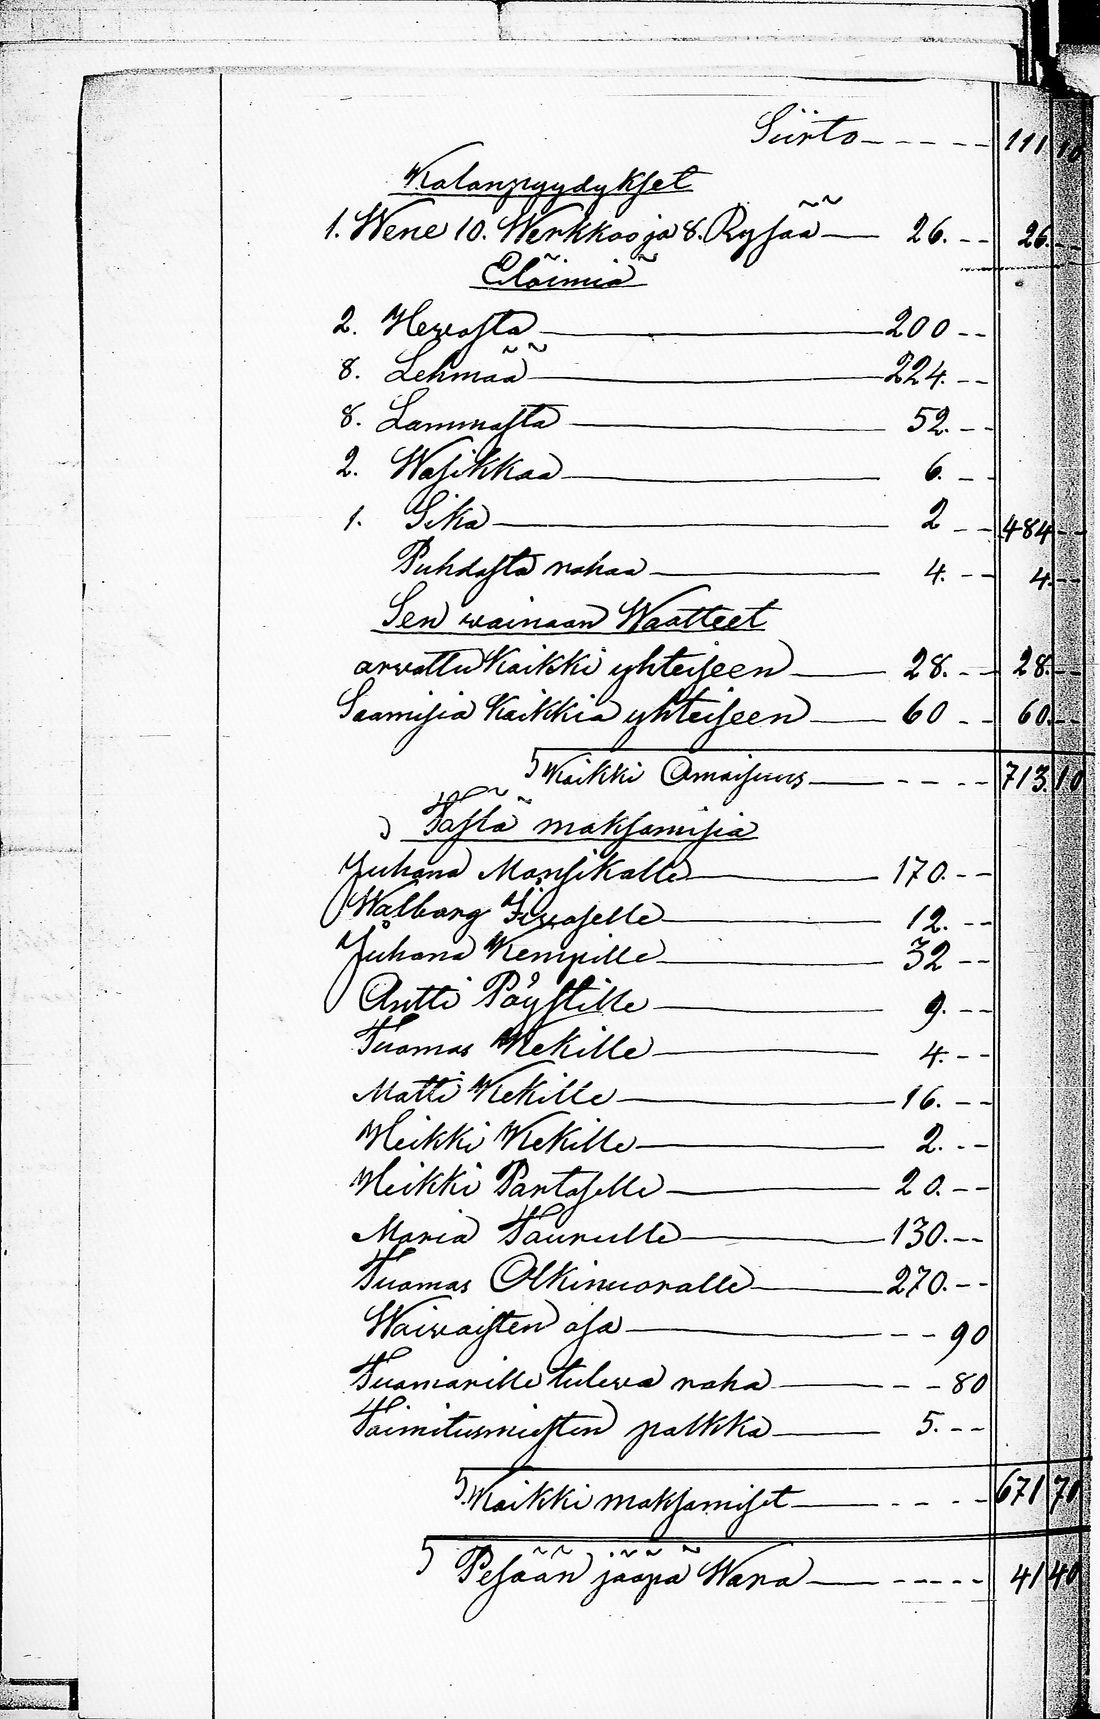 Siirto - - - - - 111 10
Kalanpyydykset
1. Wene 10. Werkkoo ja 8. Rysää — 26. - - 26. - -
Eläimiä
2. Hewosta — 200 - -
8. Lehmää — 224. - -
8. Lammasta — 52. - -
2. Wasikkaa — 6. - -
1. Sika — 2 - - 484 - -
Puhdasta rahaa — 4. - - 4. - -
Sen wainaan Waatteet
arwattu Kaikki yhteiseen — 28. - - 28. - -
Saamisia Kaikkia yhteiseen — 60 - - 60. - -
Kaikki Omaisuus — - - - - 713. 10
Tästä maksamisia
Juhana Mansikalle — 170. - -
Walborg Hirwoselle — 12. - -
Juhana Kempille — 32 - -
Antti Pöystille — 9. - -
Tuomas Kekille — 4. - -
Matti Kekille — 16. - -
Heikki Kekille — 2. - -
Heikki Partaselle — 20. - -
Maria Taurulle — 130. - -
Tuomas Olkinuoralle — 270. - -
Waiwaisten osa — - - 90
Tuomarille tulewa raha — - - 80
Toimitusmiesten palkka — 5. - -
Kaikki maksamiset — - - - - 671 70
Pesään jääpä Wara — - - - - - 41 40